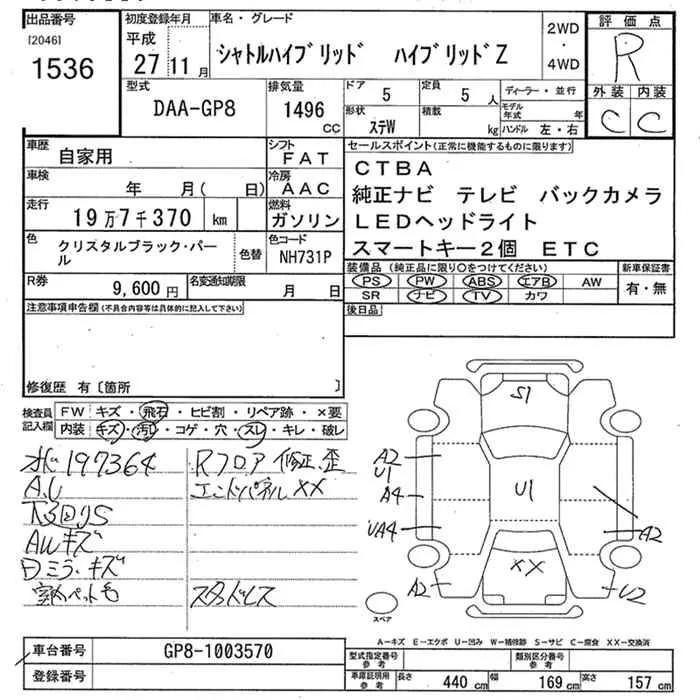 出品番号 初度登録年月 車名・グレード 評価点
[2046] 平成 2WD
1536 27 11 月 シャトルハイブリッド ハイブリッドZ ・ R
4WD
型式 排気量 ドア 定員 ディーラー・並行 外装 内装
DAA-GP8 1496 5 5 人 モデル年式 年 C C
cc 形状 ステW 積載 kg ハンドル 左・右
車歴 自家用 シフト FAT セールスポイント(正常に機能するものに限ります)
車検 年 月( 日) 冷房 AAC CTBA
走行 19万7千370 km 燃料 ガソリン 純正ナビ テレビ バックカメラ
LEDヘッドライト
色 クリスタルブラック・パール 色替 色コード NH731P スマートキー2個 ETC
R券 9,600円 名変通知期限 月 日 装備品(純正品に限り○をつけてください) 新車保証書
PS PW ABS エアB AW 有・無
SR ナビ TV カワ
注意事項申告欄(不具合内容等は具体的に記入して下さい) 後日品
修復歴 有〔箇所 〕
検査員 FW キズ・飛石・ヒビ割・リペア跡・×要
記入欄 内装 キズ・汚れ・コゲ・穴・スレ・キレ・破レ
水 197364 Rフロア 修正、歪
A,U エンドパネルXX
下回りS
AWキズ
Dミラ・キズ
室内ペット毛 スタッドレス
S1
A2
U1
A4 U1
UA4 A2
XX
A2 U2
スペア
A-キズ E-エクボ U-凹み W-補修跡 S-サビ C-腐食 XX-交換済
車台番号 GP8-1003570 型式指定番号 参考 類別区分番号 参考
登録番号 車庫証明用 参考 長さ 440 cm 幅 169 cm 高さ 157 cm